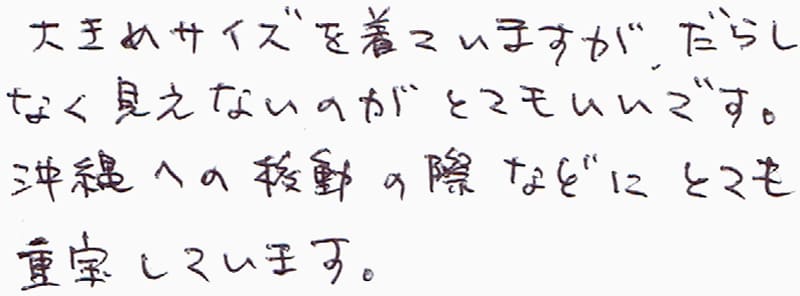 大きめサイズを着ていますが、だらし
なく見えないのがとてもいいです。
沖縄への移動の際などにとても
重宝しています。